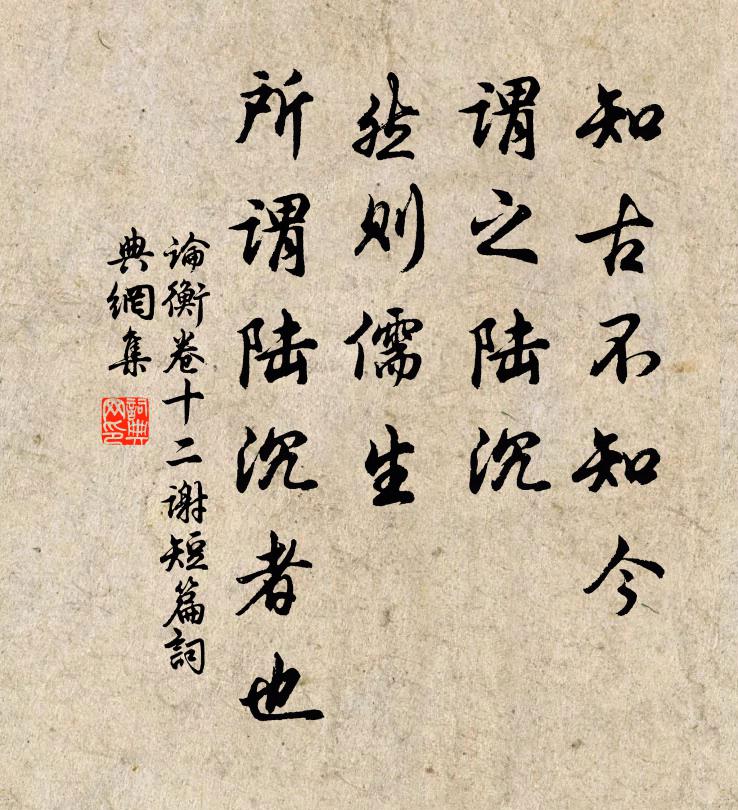 知古不知今
謂之陸沉
然則儒生
所謂陸沉者也
論衡卷十二謝短篇詞
典網集
詞典
网印